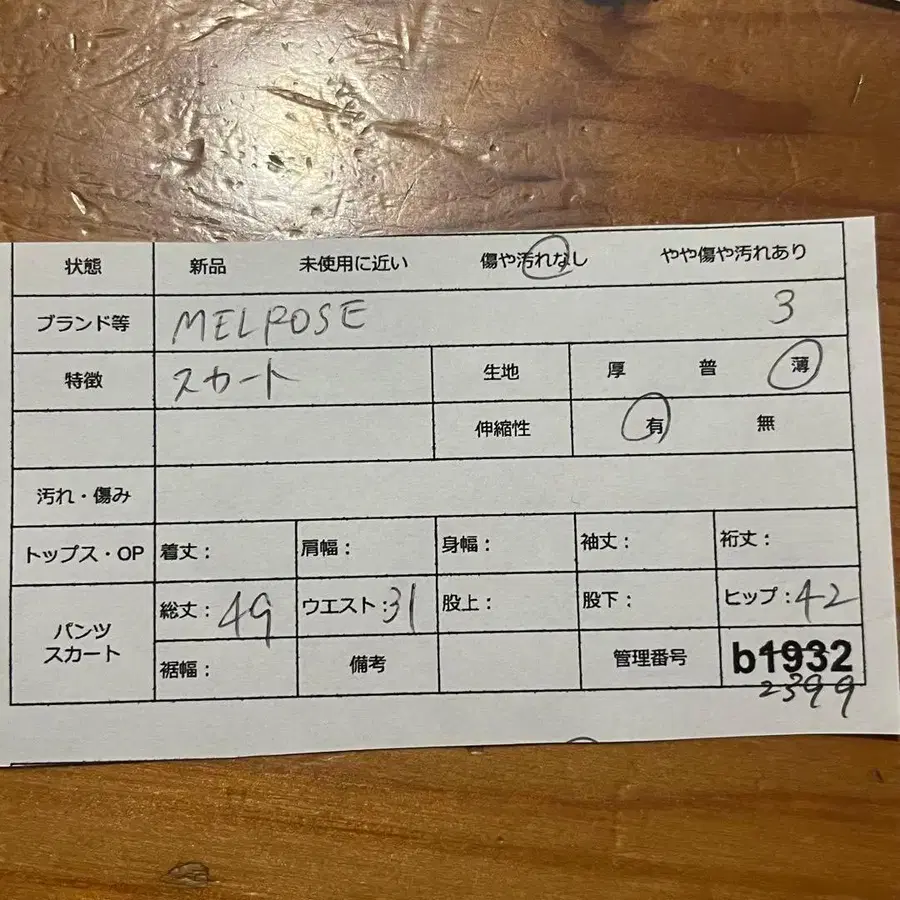 状態 新品 未使用に近い 傷や汚れなし やや傷や汚れあり
ブランド等 MELROSE 3
特徴 スカート 生地 厚 普 薄
伸縮性 有 無
汚れ・傷み
トップス・OP 着丈： 肩幅： 身幅： 袖丈： 裄丈：
パンツ スカート 総丈：49 ウエスト：31 股上： 股下： ヒップ：42
裾幅： 備考 管理番号 b1932
2399